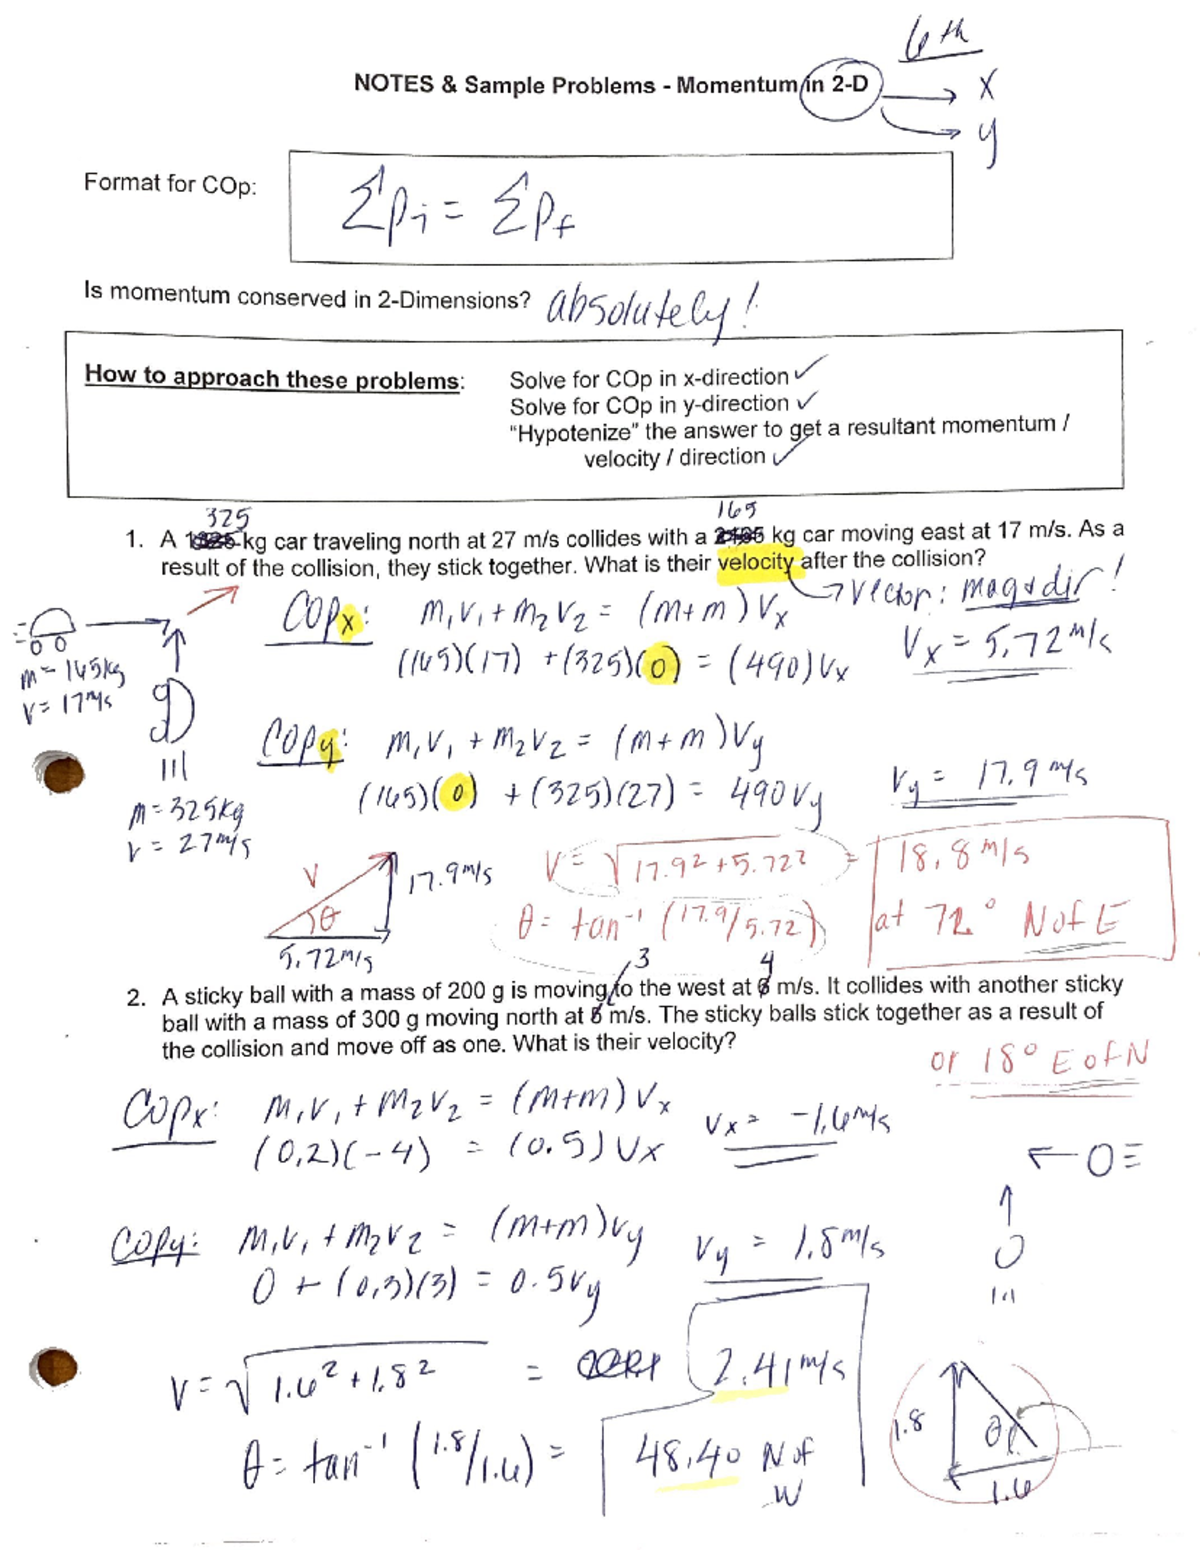 6th
NOTES & Sample Problems - Momentum in 2-D
x
y
Format for COp:
Σpi = Σpf
Is momentum conserved in 2-Dimensions? absolutely!
How to approach these problems:
Solve for COp in x-direction ✓
Solve for COp in y-direction ✓
"Hypotenize" the answer to get a resultant momentum /
velocity / direction ✓
325
165
1. A kg car traveling north at 27 m/s collides with a kg car moving east at 17 m/s. As a
result of the collision, they stick together. What is their velocity after the collision?
→ vector: mag & dir!
COPx: m₁v₁ + m₂v₂ = (m+m)Vx
(165)(17) + (325)(0) = (490)Vx
Vx = 5.72 m/s
m = 165kg
v = 17m/s
COPy: m₁v₁ + m₂v₂ = (m+m)Vy
(165)(0) + (325)(27) = 490Vy
Vy = 17.9 m/s
m = 325kg
v = 27m/s
V
θ
17.9m/s
5.72m/s
V = √17.9² + 5.72² = 18.8 m/s
θ = tan⁻¹ (17.9/5.72)
at 72° N of E
3
4
2. A sticky ball with a mass of 200 g is moving to the west at m/s. It collides with another sticky
ball with a mass of 300 g moving north at m/s. The sticky balls stick together as a result of
the collision and move off as one. What is their velocity?
or 18° E of N
COPx: m₁v₁ + m₂v₂ = (m+m)Vx
(0.2)(-4) = (0.5)Vx
Vx = -1.6m/s
COPy: m₁v₁ + m₂v₂ = (m+m)vy
0 + (0.3)(3) = 0.5vy
Vy = 1.8m/s
V = √1.6² + 1.8² = 2.41m/s
θ = tan⁻¹ (1.8/1.6) = 48.40 N of W
1.8
θ
1.6